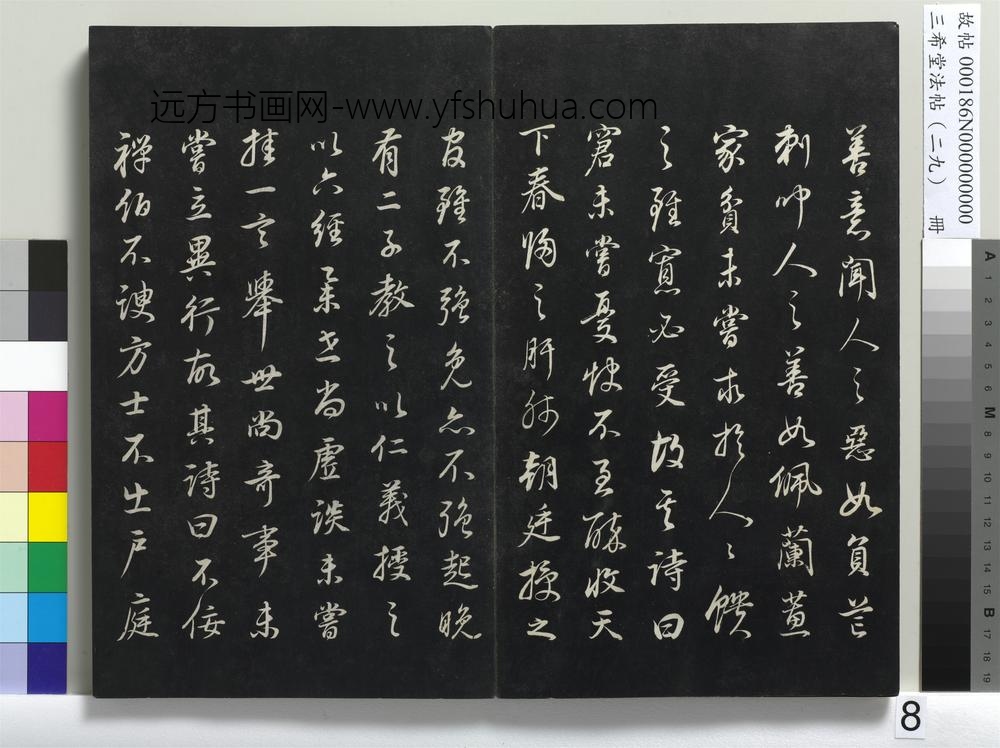 故帖 000186N000000000
三希堂法帖(二九) 冊
远方书画网-www.yfshuhua.com
善意聞人之惡如負芒
刺聞人之善如佩蘭蕙
家貧未嘗求於人〻饋
之雖寡必受故其詩曰
窘未嘗憂飲不至醉收天
下春歸之肝肺朝廷授之
官雖不強免亦不強起晚
有二子教之以仁義授之
以六經舉世尚虛談未嘗
挂一言舉世尚奇事未
嘗立異行故其詩曰不佞
禪伯不諛方士不出戶庭
8
A 1 2 3 4 5 6 M 8 9 10 11 12 13 14 15 B 17 18 19